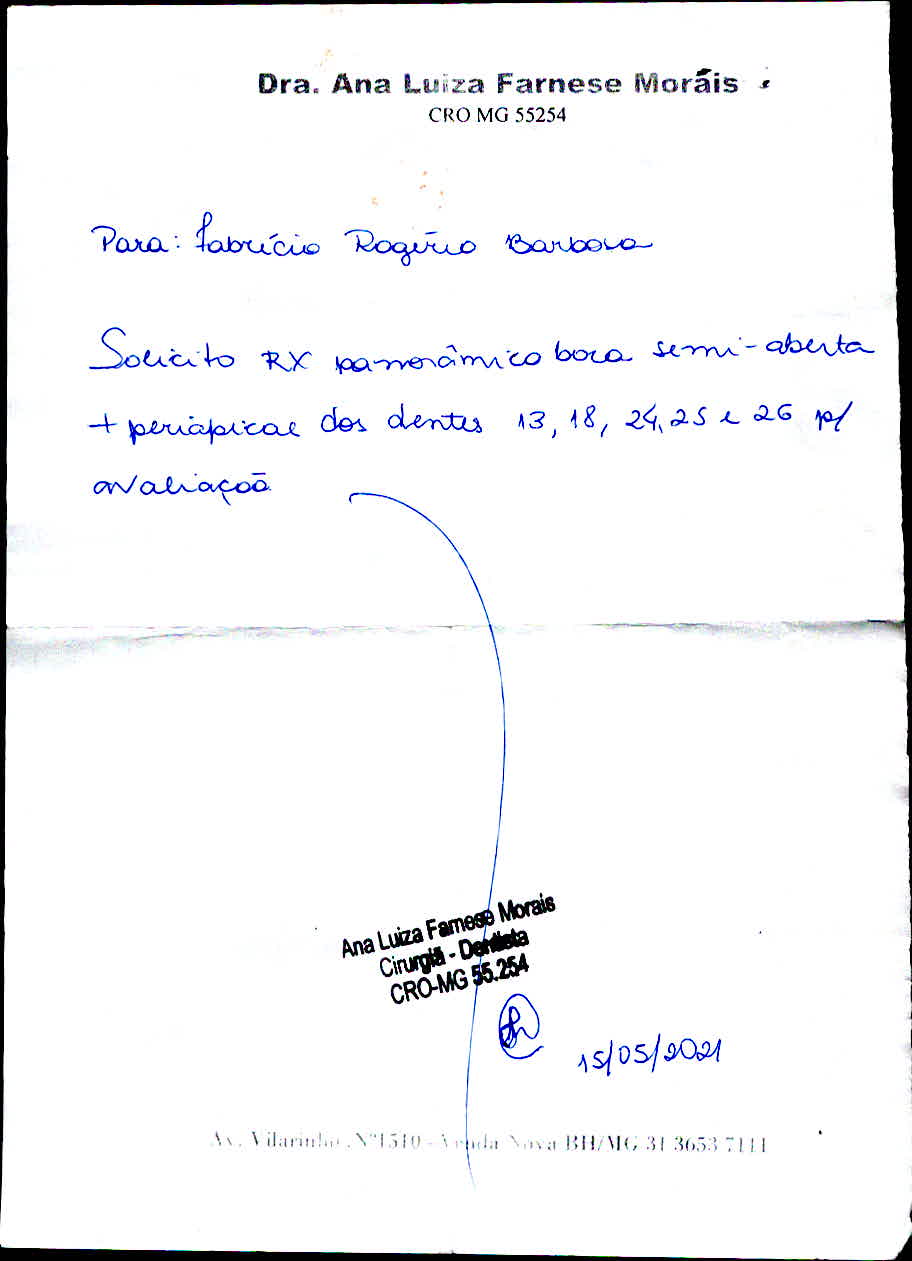 Dra. Ana Luiza Farnese Morais
CRO MG 55254
Para: Fabrício Rogério Barbosa
Solicito RX panorâmico boca semi-aberta
+ periapical dos dentes 13, 18, 24, 25 e 26 p/
avaliação
Ana Luiza Farnese Morais
Cirurgiã - Dentista
CRO-MG 55.254
15/05/2021
Av. Vilarinho ,Nº1510 - Venda Nova BH/MG 31 3653 7111